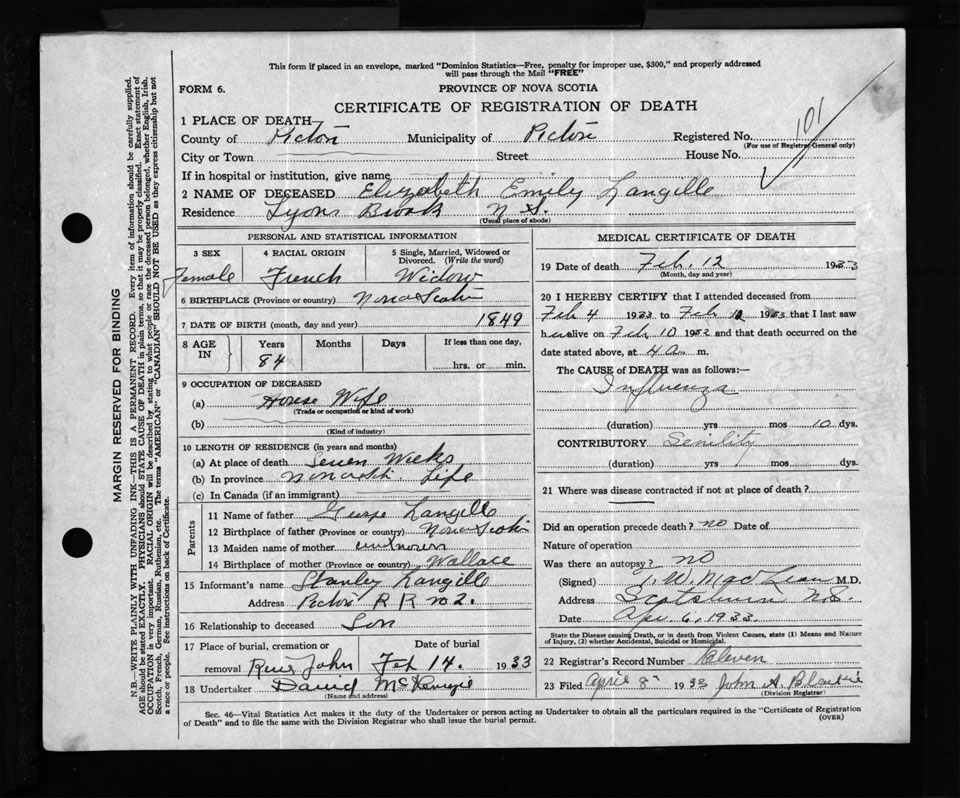 This form if placed in an envelope, marked "Dominion Statistics—Free, penalty for improper use, $300," and properly addressed
will pass through the Mail "FREE"
FORM 6.
PROVINCE OF NOVA SCOTIA
CERTIFICATE OF REGISTRATION OF DEATH
101
1 PLACE OF DEATH
County of Pictou Municipality of Pictou Registered No.
(For use of Registrar General only)
City or Town Street House No.
If in hospital or institution, give name
2 NAME OF DECEASED Elizabeth Emily Langille
Residence Lyons Brook N S.
(Usual place of abode)
PERSONAL AND STATISTICAL INFORMATION
3 SEX 4 RACIAL ORIGIN 5 Single, Married, Widowed or
Divorced. (Write the word)
Female French Widow
6 BIRTHPLACE (Province or country) Nova Scotia
7 DATE OF BIRTH (month, day and year) 1849
8 AGE IN Years Months Days If less than one day,
84 hrs. or min.
9 OCCUPATION OF DECEASED
(a) House Wife
(Trade or occupation or kind of work)
(b)
(Kind of industry)
10 LENGTH OF RESIDENCE (in years and months)
(a) At place of death Seven Weeks
(b) In province Life
(c) In Canada (if an immigrant)
Parents
11 Name of father George Langille
12 Birthplace of father (Province or country) Nova Scotia
13 Maiden name of mother unknown
14 Birthplace of mother (Province or country) Wallace
15 Informant's name Stanley Langille
Address Pictou R R no 2.
16 Relationship to deceased Son
17 Place of burial, cremation or Date of burial
removal River John Feb 14. 1933
18 Undertaker David McKenzie
(Name and address)
MEDICAL CERTIFICATE OF DEATH
19 Date of death Feb. 12 1933
(Month, day and year)
20 I HEREBY CERTIFY that I attended deceased from
Feb 4 1933 to Feb 1933 that I last saw
h alive on Feb 10 19 and that death occurred on the
date stated above, at 4 a m.
The CAUSE of DEATH was as follows:—
Influenza
(duration) yrs mos 10 dys.
CONTRIBUTORY Senility
(duration) yrs mos dys.
21 Where was disease contracted if not at place of death?
Did an operation precede death? no Date of
Nature of operation
Was there an autopsy? no
(Signed) MacLean M.D.
Address Scotsburn N.S.
Date Apr. 6, 1933.
State the Disease causing Death, or in death from Violent Causes, state (1) Means and Nature
of Injury, (2) whether Accidental, Suicidal or Homicidal.
22 Registrar's Record Number Eleven
23 Filed April 8 1933 John A. Blaikie
(Division Registrar)
Sec. 46—Vital Statistics Act makes it the duty of the Undertaker or person acting as Undertaker to obtain all the particulars required in the "Certificate of Registration
of Death" and to file the same with the Division Registrar who shall issue the burial permit.
(OVER)
MARGIN RESERVED FOR BINDING
N.B.—WRITE PLAINLY WITH UNFADING INK—THIS IS A PERMANENT RECORD. Every item of information should be carefully supplied.
AGE should be stated EXACTLY. PHYSICIANS should STATE CAUSE OF DEATH in plain terms, so that it may be properly classified. Exact statement of
OCCUPATION is very important. RACIAL ORIGIN will be described by stating to what people or race the deceased person belonged, whether English, Irish,
Scotch, French, German, Russian, Ruthenian, etc. The terms "AMERICAN" or "CANADIAN" SHOULD NOT BE USED as they express citizenship but not
a race or people. See instructions on back of Certificate.